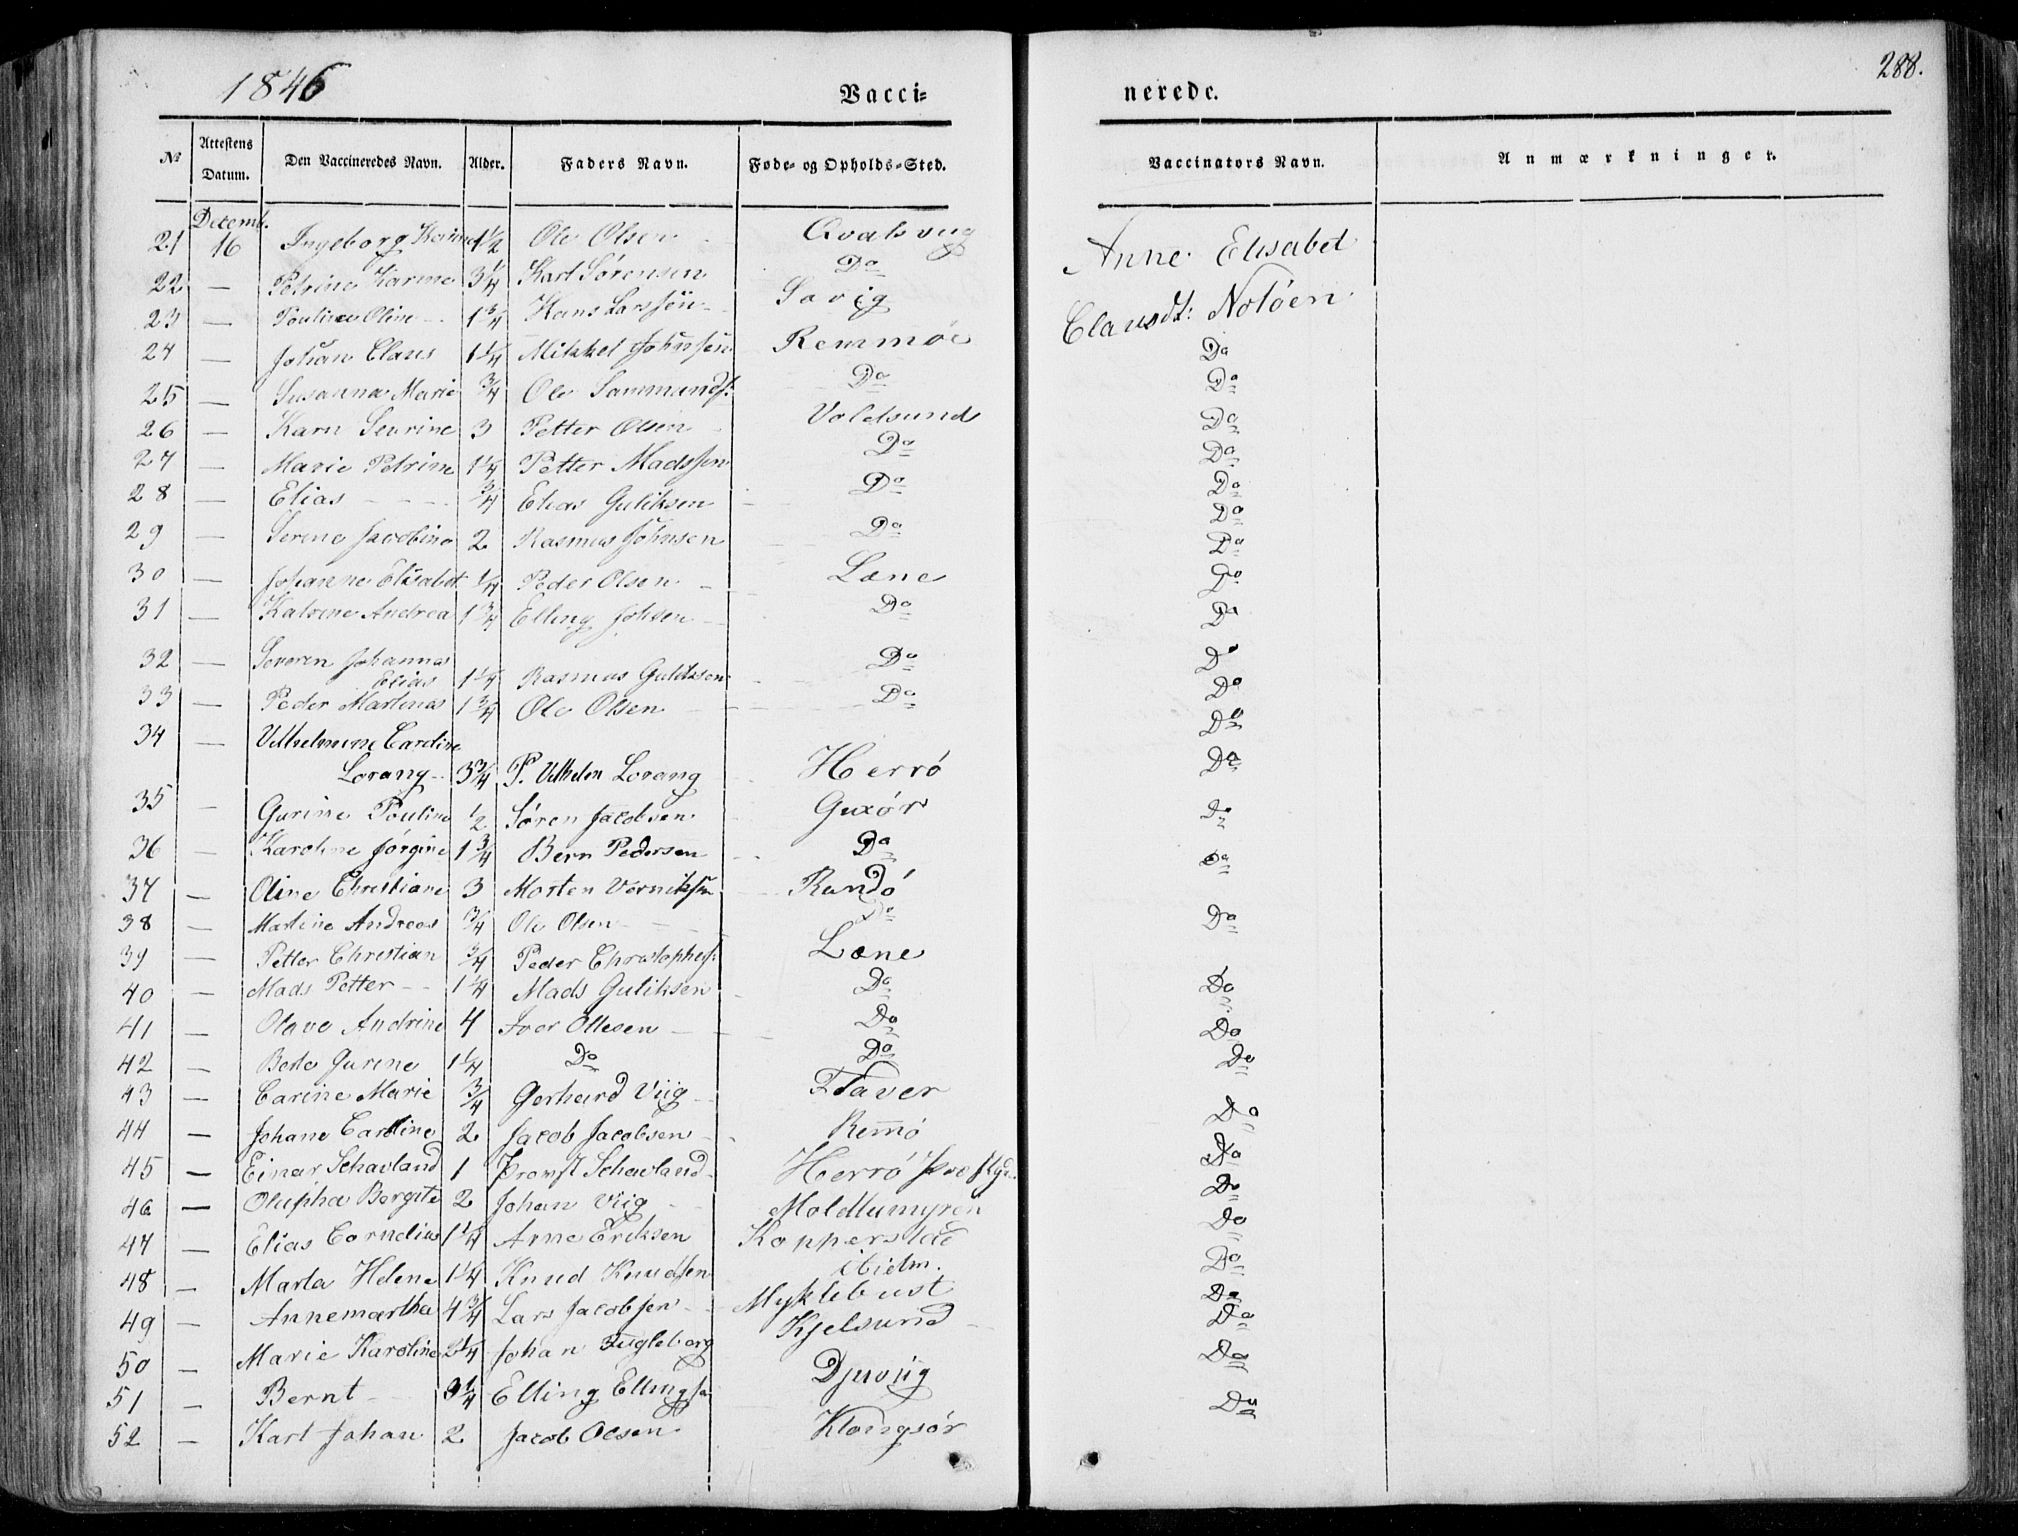 1846
Vacci=
nerede.
288.
No
Attestens Datum.
Den Vaccineredes Navn.
Alder.
Faders Navn.
Føde- og Opholds-Sted.
Vaccinators Navn.
Anmærkninger.
Decemb.
21 16 Ingeborg 1½ Ole Olsen Anne Elisabet
22 — Petrine Karine 3¼ Karl Sørensen Do
23 — Oline 1¾ Hans Larssøn Savig Clausdt: Notøen
24 — Johan Claus 1¼ Mikkel Johnsen Remmøe Do
25 — Susanna Marie ¾ Ole Sammundsr Do Do
26 — Karn Sevrine 3 Petter Olsen Voldsund Do
27 — Marie Petrine 1¼ Petter Madssen Do Do
28 — Elias ¾ Elias Guliksen Do Do
29 — Serine Jacobine 2 Rasmus Johnsen Do Do
30 — Johanne Elisabet ¼ Peder Olsen Læne Do
31 — Katrine Andrea 1¾ Elling Johsen Do Do
32 — Severen Johannas Do
Elias 1¼ Rasmus Guliksen Do Do
33 — Peder Martinas 1¾ Ole Olsen Do Do
34 — Vilhelmine Caroline Do
Lorang 3¾ P. Vilhelm Lorang Herrø Do
35 — Gurine Pouline ½ Søren Jacobsen Guxór Do
36 — Karoline Jørgine 1¾ Bern Pedersen Do Do
37 — Oline Christiane 3 Morten Rundø
38 — Martine Andreas ¾ Ole Olsen Do Do
39 — Petter Christian ¾ Peder Christophers: Læne
40 — Mads Petter 1¼ Mads Guliksen Do Do
41 — Olave Andrine 4 Iver Ollesen Do Do
42 — Gurine 1¼ Do Do Do
43 — Carine Marie ¾ Gerhard Viig Flaver Do
44 — Johane Caroline 2 Jacob Jacobsen Remø Do
45 — Einar Schavland 1 Schavland Herrø Do
46 — Bergite 2 Johan Viig Do
47 — Elias Cornelius 1¼ Arne Eriksen Kopperstad Do
48 — Marta Helene 1¼ Knud Knudsen Do
49 — Annemartha 4¾ Lars Jacobsen Myklebust Do
Kjelsund Do
50 — Marie Karoline 2¼ Johan Fugleberg Do
51 — Bernt 3¼ Elling Ellingsen Djuviig
52 — Karl Johan 2 Jacob Olsen Klongsør Do